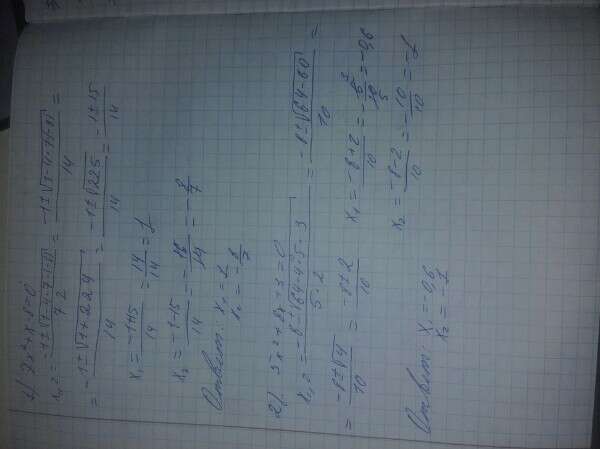 1) 7x²+x-8=0
x₁,₂ = (-1±√(1-4·7·(-8)))/(7·2) = (-1±√(1-4·7·(-8)))/14 =
= (-1±√(1+224))/14 = (-1±√225)/14 = (-1±15)/14
x₁ = (-1+15)/14 = 14/14 = 1
x₂ = (-1-15)/14 = -16/14 = -8/7
Ответ: x₁=1
x₂ = -8/7
2) 5x²+8x+3=0
x₁,₂ = (-8±√(64-4·5·3))/(5·2) = (-8±√(64-60))/10 =
= (-8±√4)/10 = (-8±2)/10
x₁ = (-8+2)/10 = -6/10 = -0,6
x₂ = (-8-2)/10 = -10/10 = -1
Ответ: x₁ = -0,6
x₂ = -1